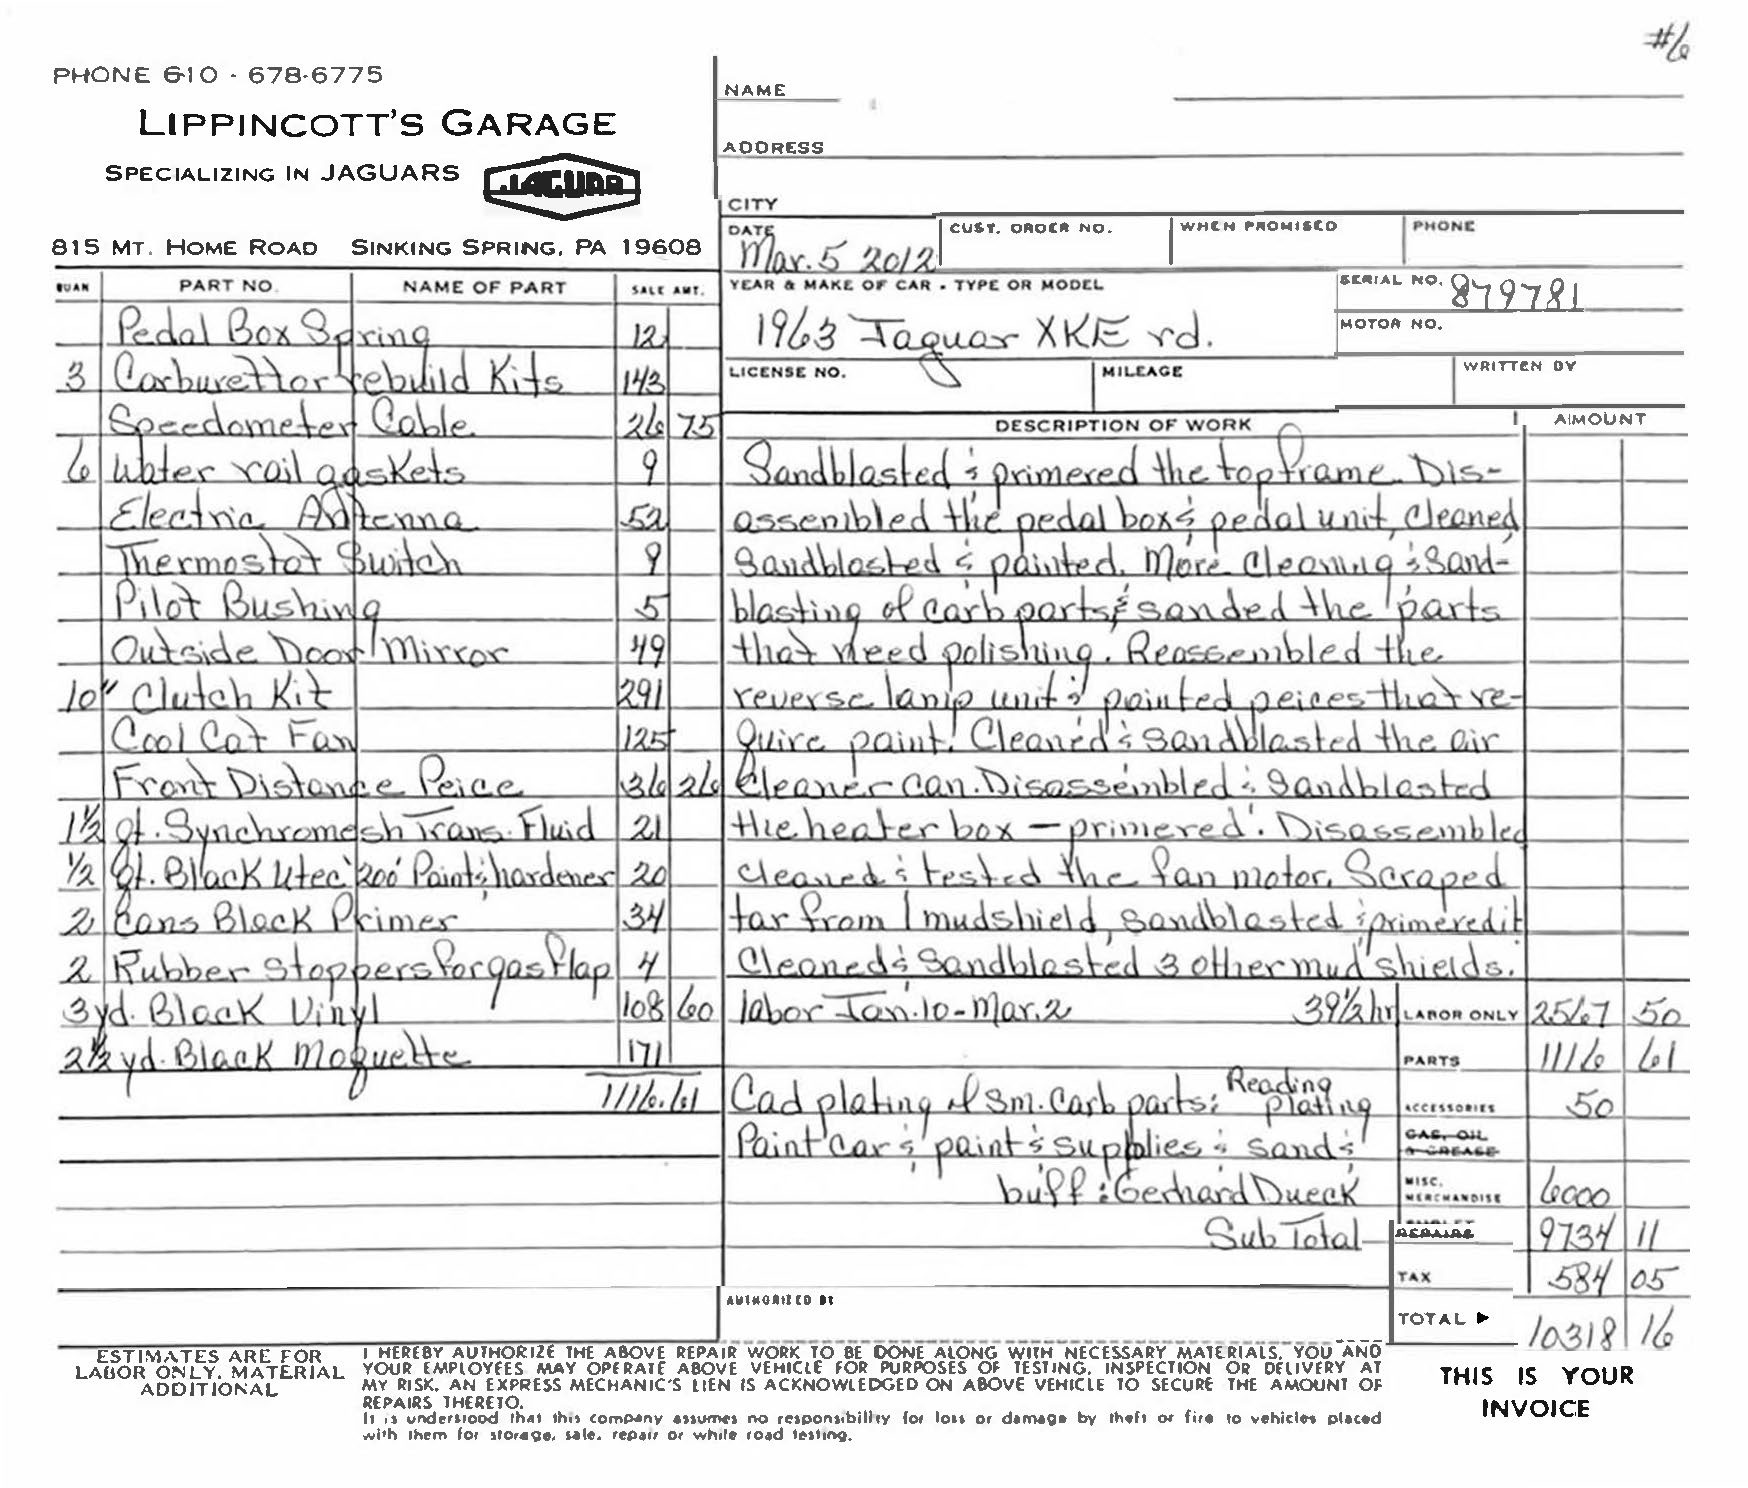 #6
PHONE 610 - 678-6775
LIPPINCOTT'S GARAGE
SPECIALIZING IN JAGUARS
JAGUAR
815 MT. HOME ROAD SINKING SPRING, PA 19608
NAME
ADDRESS
CITY
DATE Mar. 5 2012
CUST. ORDER NO.
WHEN PROMISED
PHONE
YEAR & MAKE OF CAR - TYPE OR MODEL
1963 Jaguar XKE rd.
SERIAL NO. 879781
MOTOR NO.
LICENSE NO.
MILEAGE
WRITTEN BY
QUAN PART NO. NAME OF PART SALE AMT.
Pedal Box Spring 12
3 Carburettor rebuild Kits 143
Speedometer Cable 26 75
6 Water rail gaskets 9
Electric Antenna 52
Thermostat Switch 9
Pilot Bushing 5
Outside Door Mirror 49
10" Clutch Kit 291
Cool Cat Fan 125
Front Distance Peice 36 26
1½ qt. Synchromesh Trans. Fluid 21
½ qt. Black Utec '200' Paint & hardener 20
2 Cans Black Primer 34
2 Rubber Stoppers for gas flap 4
3 yd. Black Vinyl 108 60
2½ yd. Black Moquette 171
1116.61
DESCRIPTION OF WORK AMOUNT
Sandblasted & primered the top frame. Dis-
assembled the pedal box & pedal unit, cleaned
Sandblasted & painted. More Cleaning & Sand-
blasting of carb parts & sanded the parts
that need polishing. Reassembled the
reverse lamp unit & painted peices that re-
quire paint. Cleaned & sandblasted the air
Cleaner can. Disassembled & Sandblasted
the heater box - primered. Disassembled
cleaned & tested the fan motor. Scraped
tar from 1 mudshield, sandblasted & primered it
Cleaned & Sandblasted 3 other mud shields.
labor Jan. 10 - Mar. 2 39½ hr LABOR ONLY 2567 50
PARTS 1116 61
Cad plating of Sm. Carb parts: Reading plating ACCESSORIES 50
Paint Car & paint & supplies & sand & GAS, OIL & GREASE
buff: Gerhard Dueck MISC. MERCHANDISE 6000
Sub Total REPAIRS 9734 11
TAX 584 05
TOTAL ▶ 10318 16
AUTHORIZED BY
ESTIMATES ARE FOR
LABOR ONLY. MATERIAL
ADDITIONAL
I HEREBY AUTHORIZE THE ABOVE REPAIR WORK TO BE DONE ALONG WITH NECESSARY MATERIALS. YOU AND
YOUR EMPLOYEES MAY OPERATE ABOVE VEHICLE FOR PURPOSES OF TESTING, INSPECTION OR DELIVERY AT
MY RISK. AN EXPRESS MECHANIC'S LIEN IS ACKNOWLEDGED ON ABOVE VEHICLE TO SECURE THE AMOUNT OF
REPAIRS THERETO.
It is understood that this company assumes no responsibility for loss or damage by theft or fire to vehicles placed
with them for storage, sale, repair or while road testing.
THIS IS YOUR
INVOICE